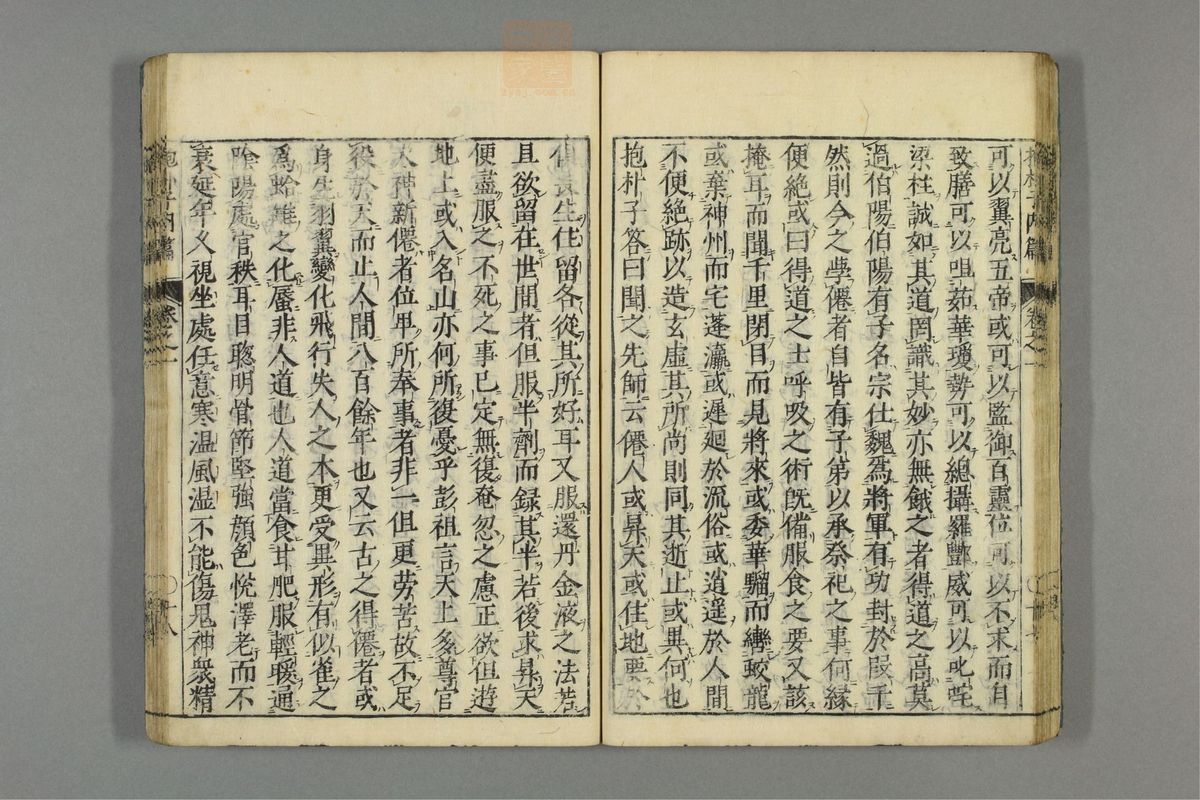 可以翼亮五帝或可以監御百靈位可以不求而自
致膳可以咀茹華璚勢可以總攝羅酆威可以叱咤
梁柱誠如其道罔識其妙亦無餓之者得道之高莫
過伯陽伯陽有子名宗仕魏爲將軍有功封於段千
然則今之學僊者自皆有子弟以承祭祀之事何緣
便絶或曰得道之士呼吸之術旣備服食之要又該
掩耳而聞千里閉目而見將來或委華騮而轡蛟龍
或棄神州而宅蓬瀛或遲廻於流俗或逍遥於人間
不便絶跡以造玄虛其所尚則同其逝止或異何也
抱朴子答曰聞之先師云僊人或昇天或住地要於
俱長生住留各從其所好耳又服還丹金液之法若
且欲留在世間者但服半劑而録其半若後求昇天
便盡服之不死之事已定無復奄忽之慮正欲但遊
地上或入名山亦何所復憂乎彭祖言天上多尊官
大神新僊者位卑所奉事者非一但更勞苦故不足
役於天而止人間八百餘年也又云古之得僊者或
身生羽翼變化飛行失人之本更受異形有似雀之
爲蛤雉之化蜃非人道也人道當食甘肥服輕暖通
陰陽處官秩耳目聰明骨節堅強顔色悅澤老而不
衰延年久視坐處任意寒温風湿不能傷鬼神衆精
抱朴子内篇 卷之一 十八